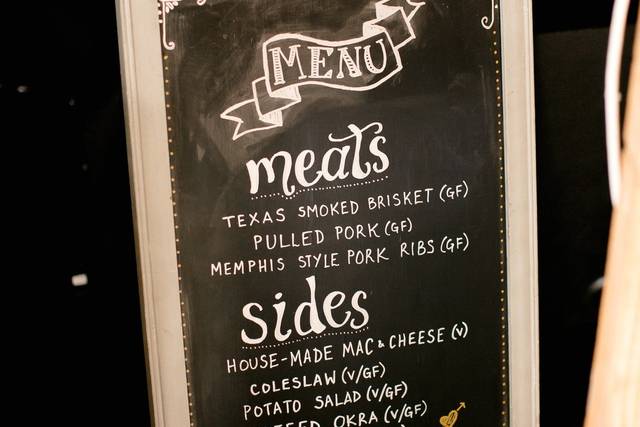 MENU
meats
TEXAS SMOKED BRISKET (GF)
PULLED PORK (GF)
MEMPHIS STYLE PORK RIBS (GF)
sides
HOUSE-MADE MAC & CHEESE (V)
COLESLAW (V/GF)
POTATO SALAD (V/GF)
OKRA (V/GF)